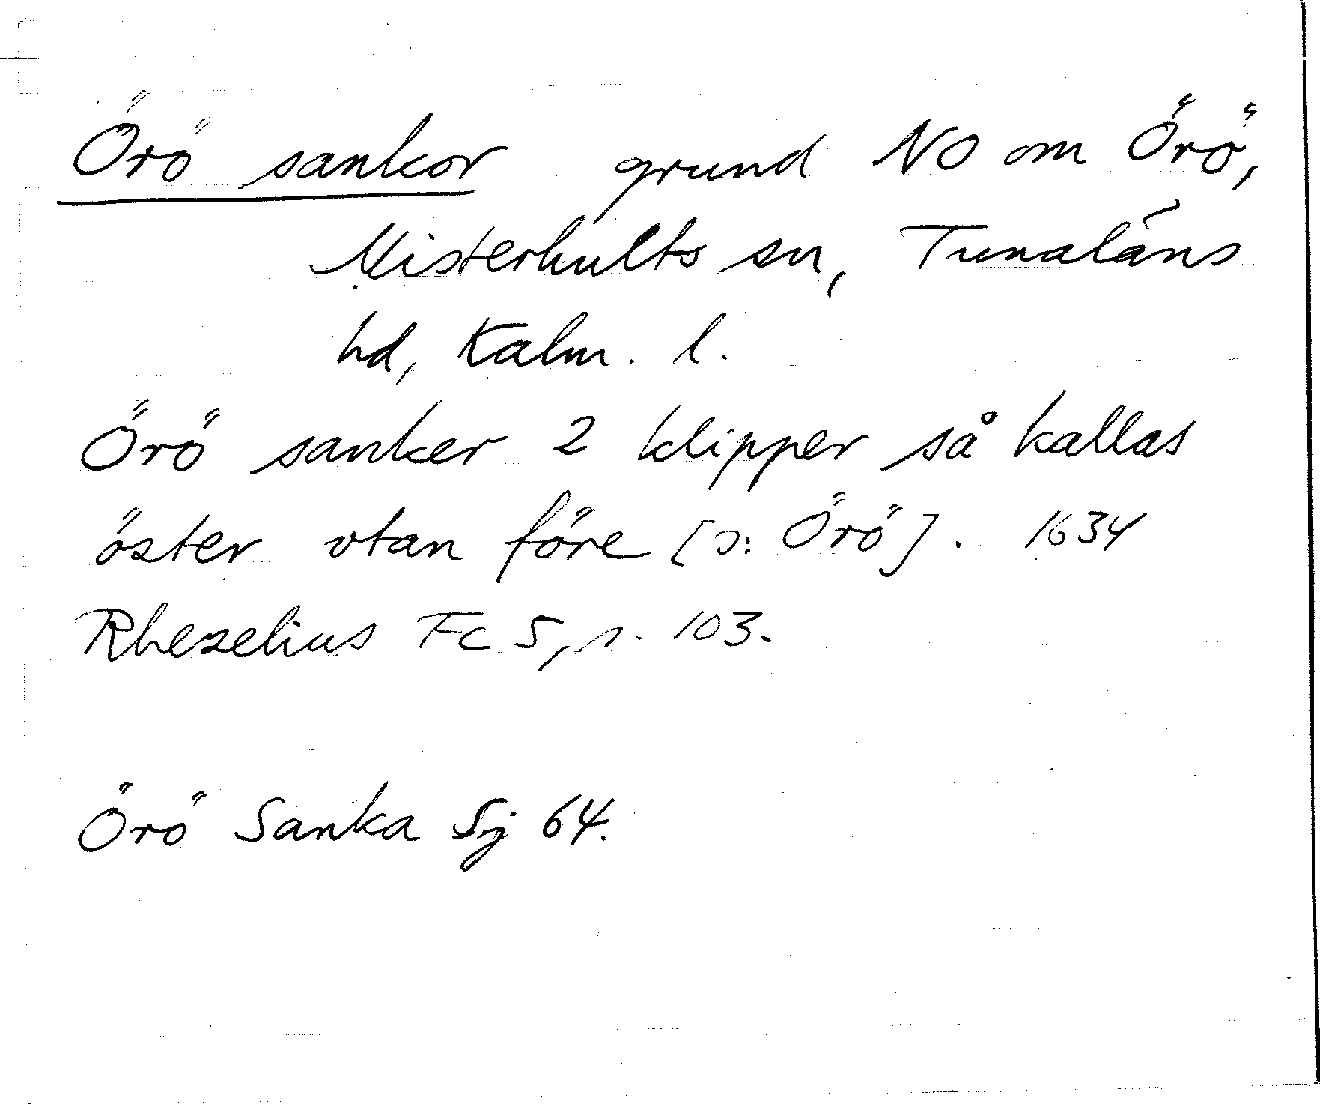 Örö sankor grund NO om Örö,
Misterhults sn, Tunaläns
hd, Kalm. l.
Örö sanker 2 klipper så kallas
öster vtan före [ɔ: Örö]. 1634
Rhezelius Fc 5, s. 103.
Örö Sanka Sj 64.